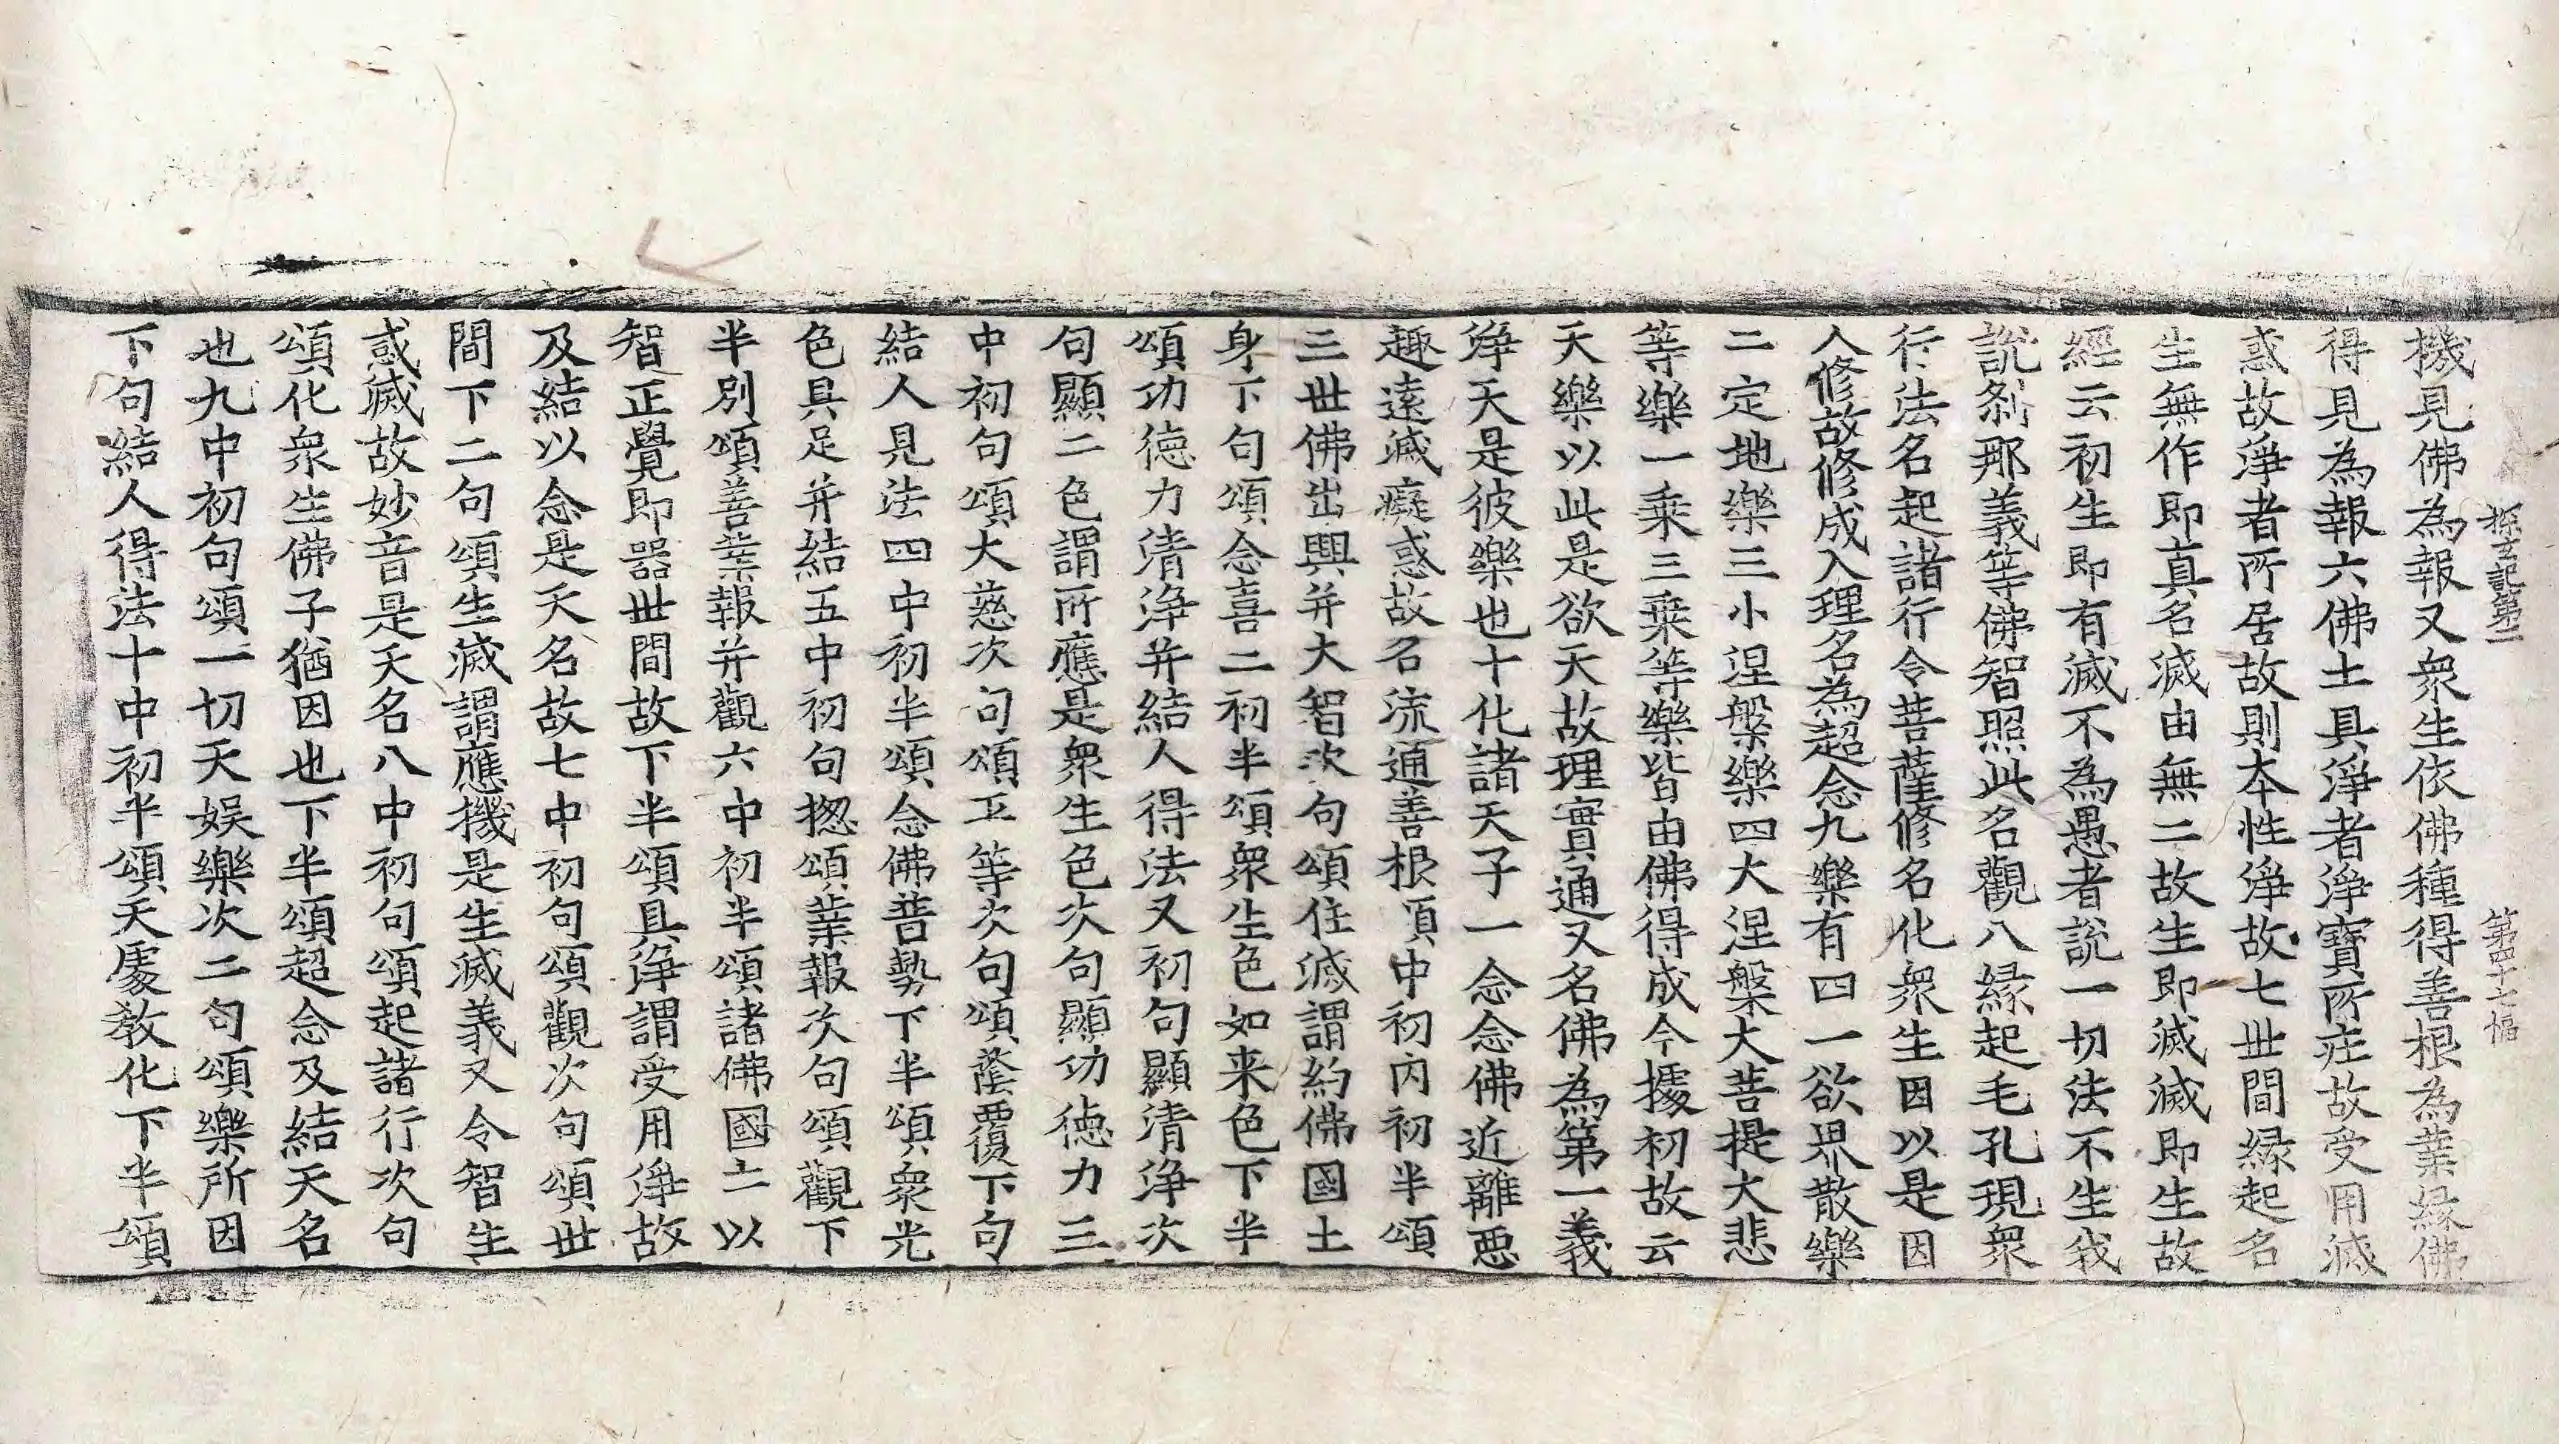 探玄記第二　第四十七幅
機見佛為報又衆生依佛種得善根為業縁佛
得見為報六佛土具淨者淨寶所庄故受用滅
惑故淨者所居故則本性淨故七世間縁起名
生無作即真名滅由無二故生即滅滅即生故
經云初生即有滅不為愚者說一切法不生我
說剎那義等佛智照此名觀八緣起毛孔現衆
行法名起諸行令菩薩修名化衆生因以是因
人修故修成入理名為超念九樂有四一欲界散樂
二定地樂三小涅槃樂四大涅槃大菩提大悲
等樂一乗三乗等樂皆由佛得成今據初故云
天樂以此是欲天故理實通又名佛為第一義
淨天是彼樂也十化諸天子一念念佛近離惡
趣遠滅癡惑故名流通善根頂中初内初半頌
三世佛出興并大智次句頌住滅謂約佛國土
身下句頌念喜二初半頌衆生色如来色下半
頌功德力清淨并結人得法又初句顯清淨次
句顯二色謂所應是衆生色次句顯功德力三
中初句頌大慈次句頌正等次句頌蔭覆下句
結人見法四中初半頌念佛普勢下半頌衆光
色具足并結五中初句揔頌業報次句頌觀下
半別頌善業報并觀六中初半頌諸佛國土以
智正覺即器世間故下半頌具淨謂受用淨故
及結以念是天名故七中初句頌觀次句頌世
間下二句頌生滅謂應機是生滅義又令智生
惑滅故妙音是天名八中初句頌起諸行次句
頌化衆生佛子猶因也下半頌超念及結天名
也九中初句頌一切天娯樂次二句頌樂所因
下句結人得法十中初半頌天處教化下半頌